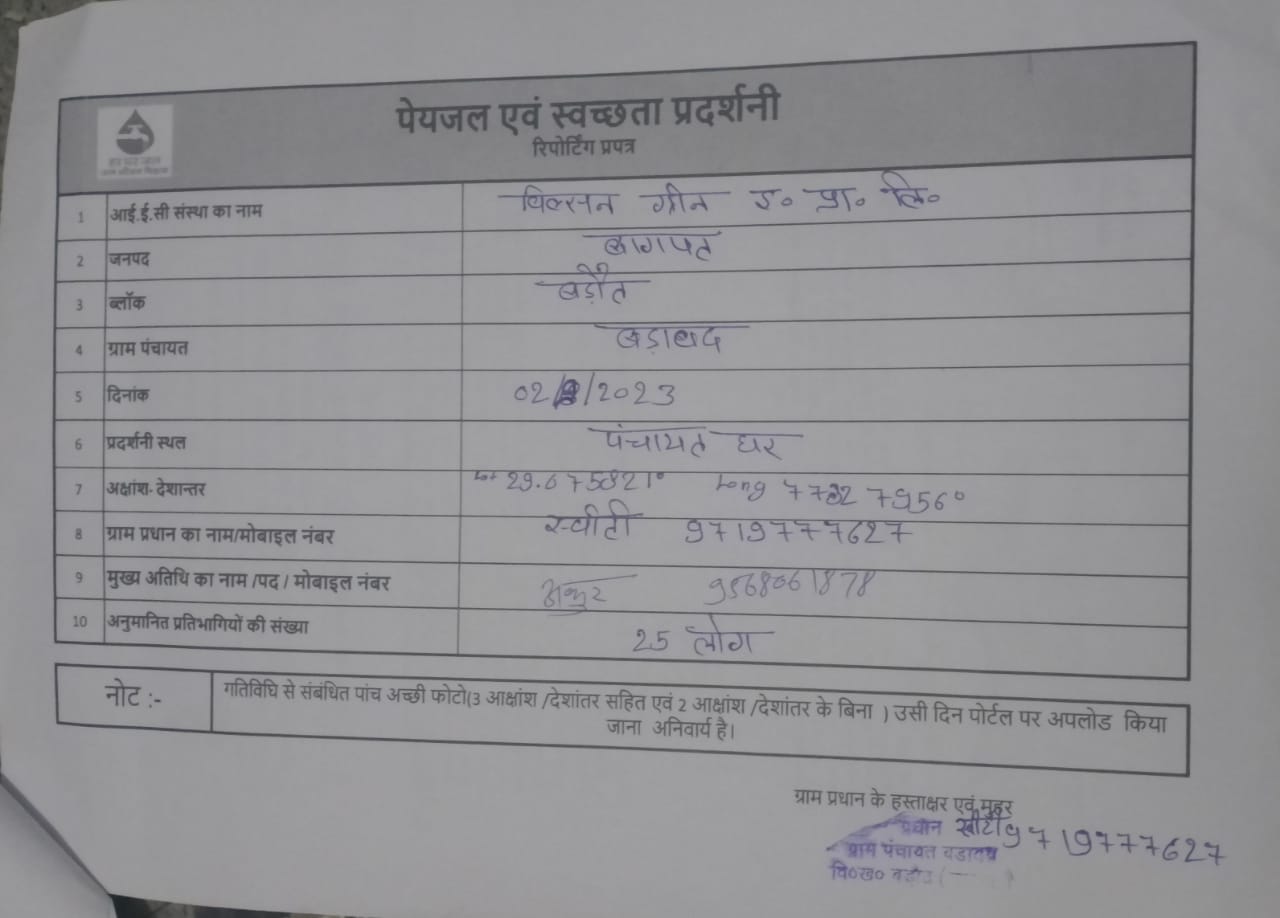 पेयजल एवं स्वच्छता प्रदर्शनी
रिपोर्टिंग प्रपत्र
हर घर जल
1 आई.ई.सी संस्था का नाम विल्सन ग्रीन इ० प्रा० लि०
2 जनपद बागपत
3 ब्लॉक बड़ौत
4 ग्राम पंचायत बड़ावद
5 दिनांक 02/ /2023
6 प्रदर्शनी स्थल पंचायत घर
7 अक्षांश- देशान्तर Lat 29.075821° Long
8 ग्राम प्रधान का नाम/मोबाइल नंबर स्वीटी 9719777627
9 मुख्य अतिथि का नाम /पद / मोबाइल नंबर अंकुर 9568061878
10 अनुमानित प्रतिभागियों की संख्या 25 लोग
नोट :- गतिविधि से संबंधित पांच अच्छी फोटो(3 आक्षांश /देशांतर सहित एवं 2 आक्षांश /देशांतर के बिना ) उसी दिन पोर्टल पर अपलोड किया
जाना अनिवार्य है।
ग्राम प्रधान के हस्ताक्षर एवं मुहर
प्रधान स्वीटी 9719777627
ग्राम पंचायत बड़ावद
वि०ख० बड़ौत